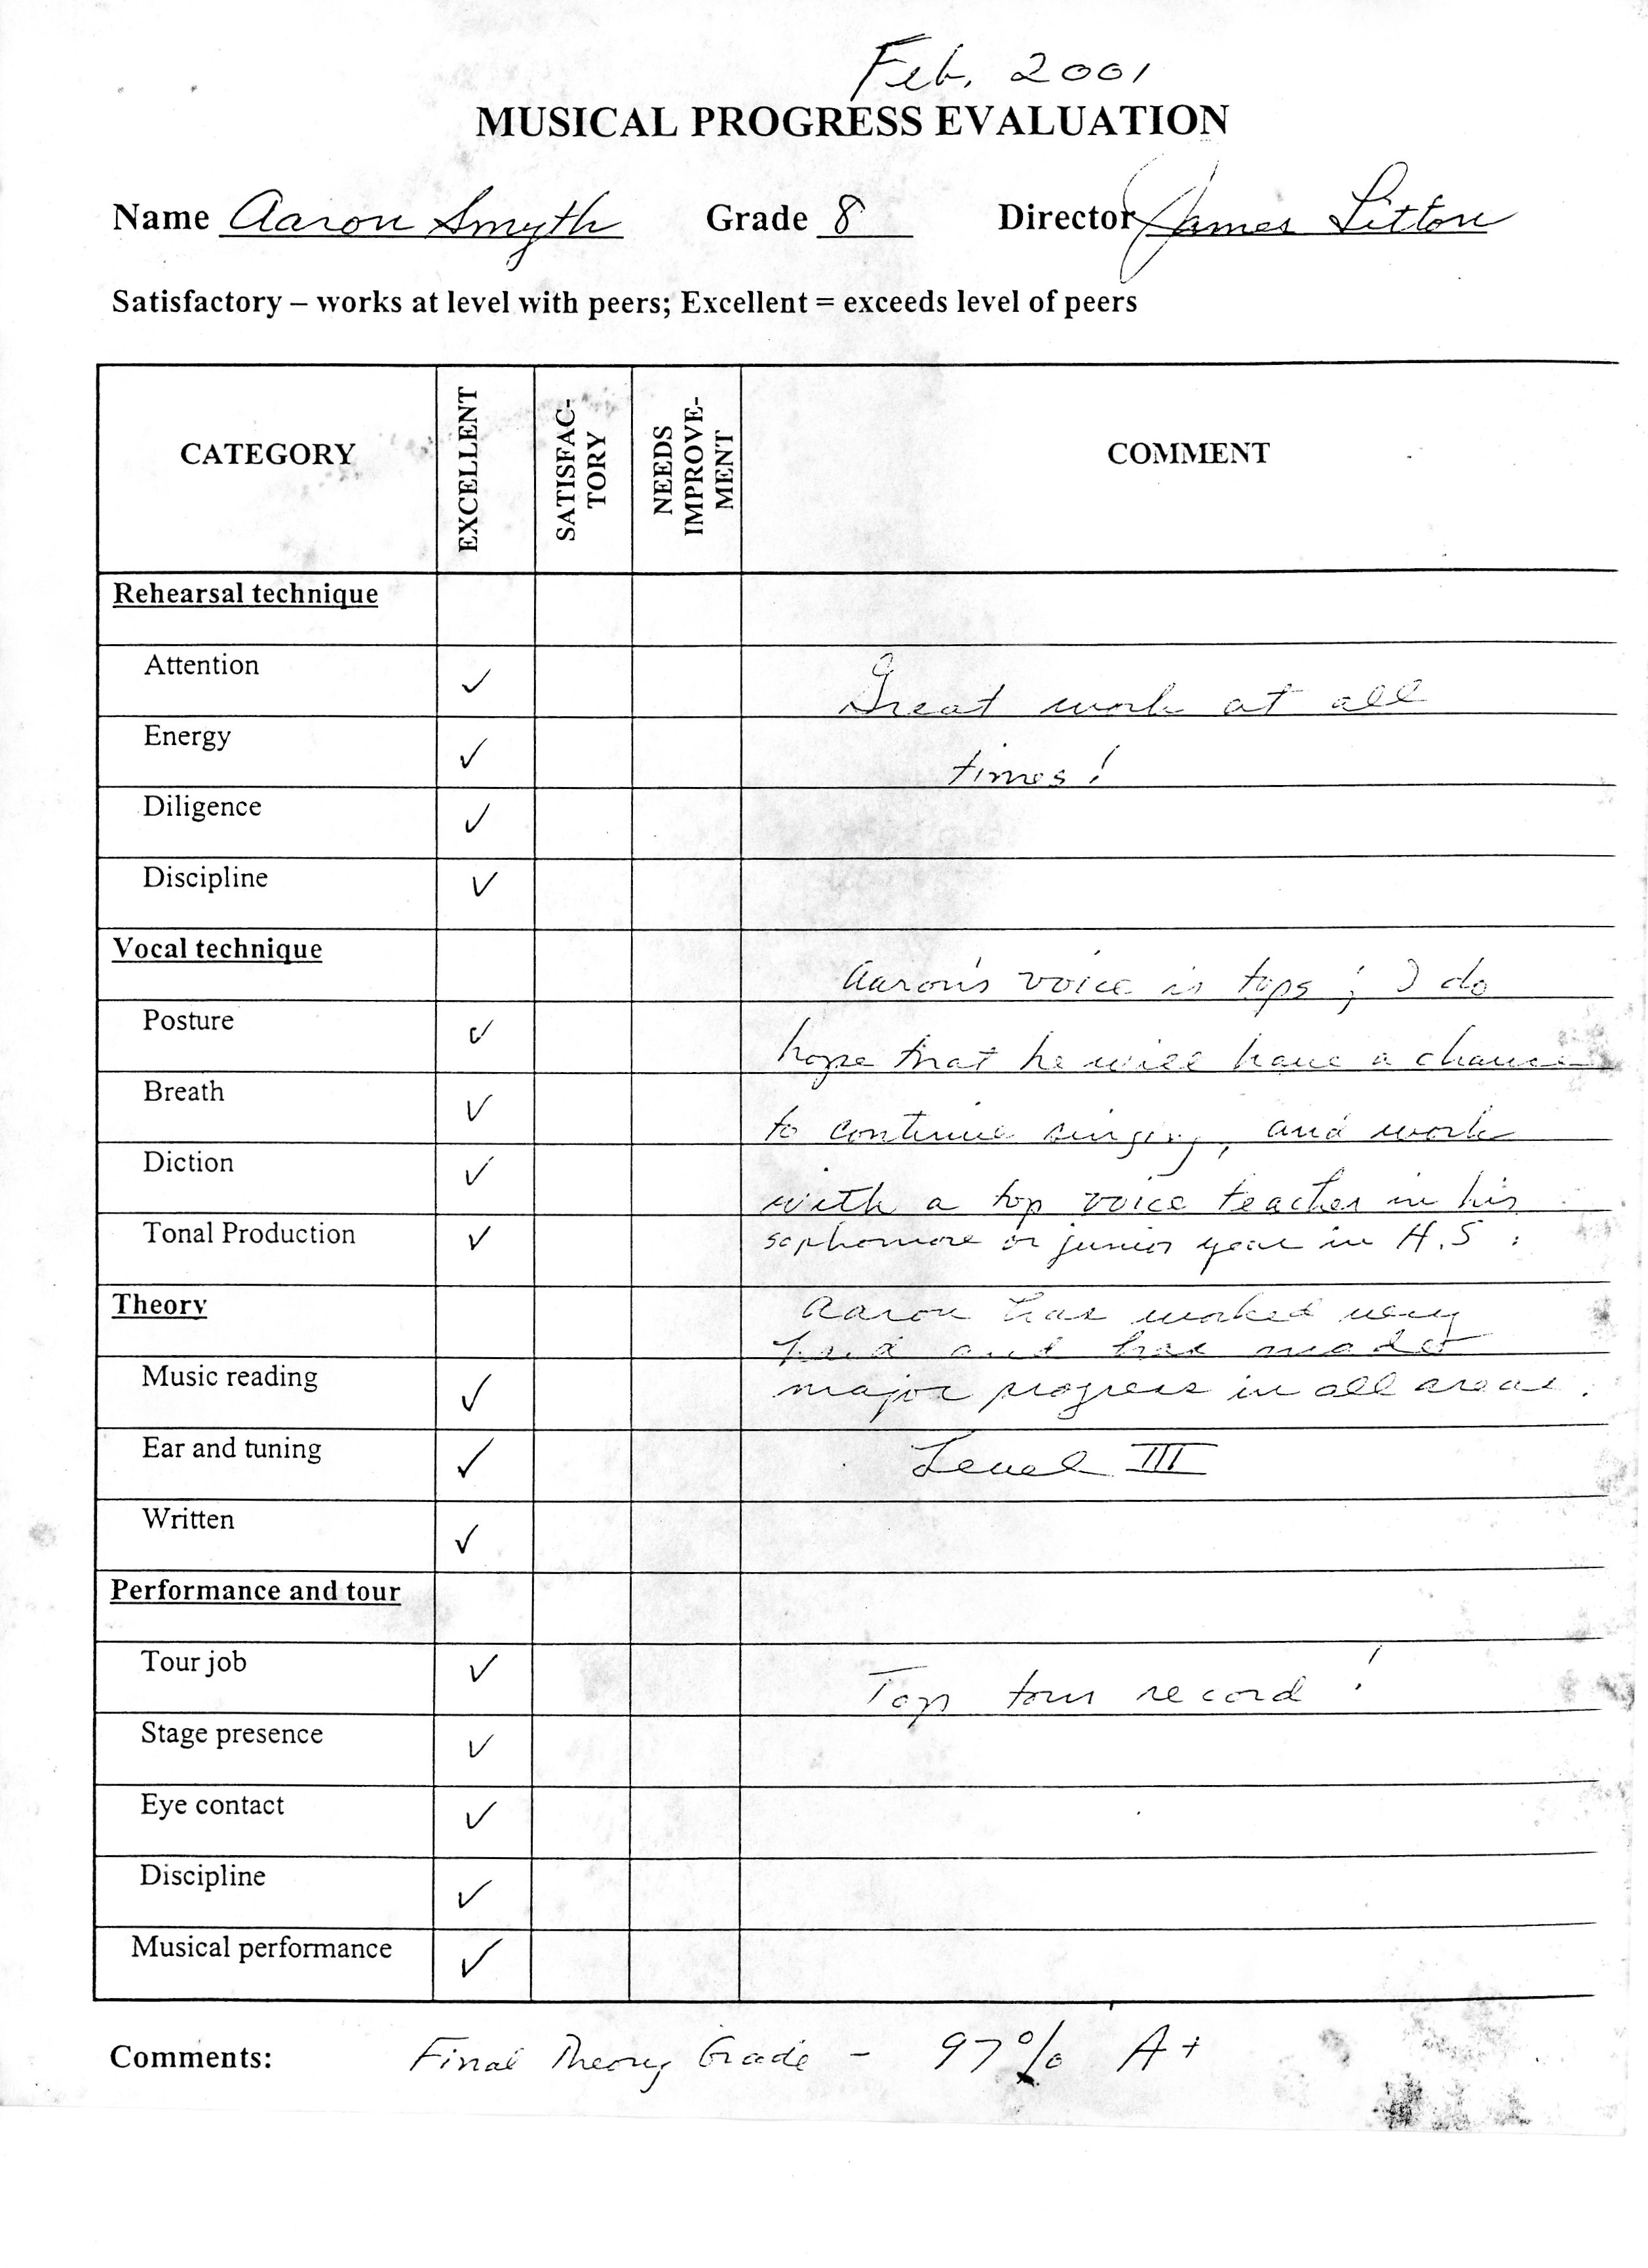 Feb. 2001
MUSICAL PROGRESS EVALUATION
Name Aaron Smyth Grade 8 Director James Litton
Satisfactory – works at level with peers; Excellent = exceeds level of peers
CATEGORY EXCELLENT SATISFAC-TORY NEEDS IMPROVE-MENT COMMENT
Rehearsal technique
Attention ✓ Great work at all
Energy ✓ times!
Diligence ✓
Discipline ✓
Vocal technique Aaron's voice is tops; I do
Posture ✓ hope that he will have a chance
Breath ✓ to continue singing, and work
Diction ✓ with a top voice teacher in his
Tonal Production ✓ sophomore or junior year in H.S.
Theory Aaron has worked very
hard and has made
Music reading ✓ major progress in all areas.
Ear and tuning ✓ Level III
Written ✓
Performance and tour
Tour job ✓ Top tour record!
Stage presence ✓
Eye contact ✓
Discipline ✓
Musical performance ✓
Comments: Final Theory Grade - 97% A+